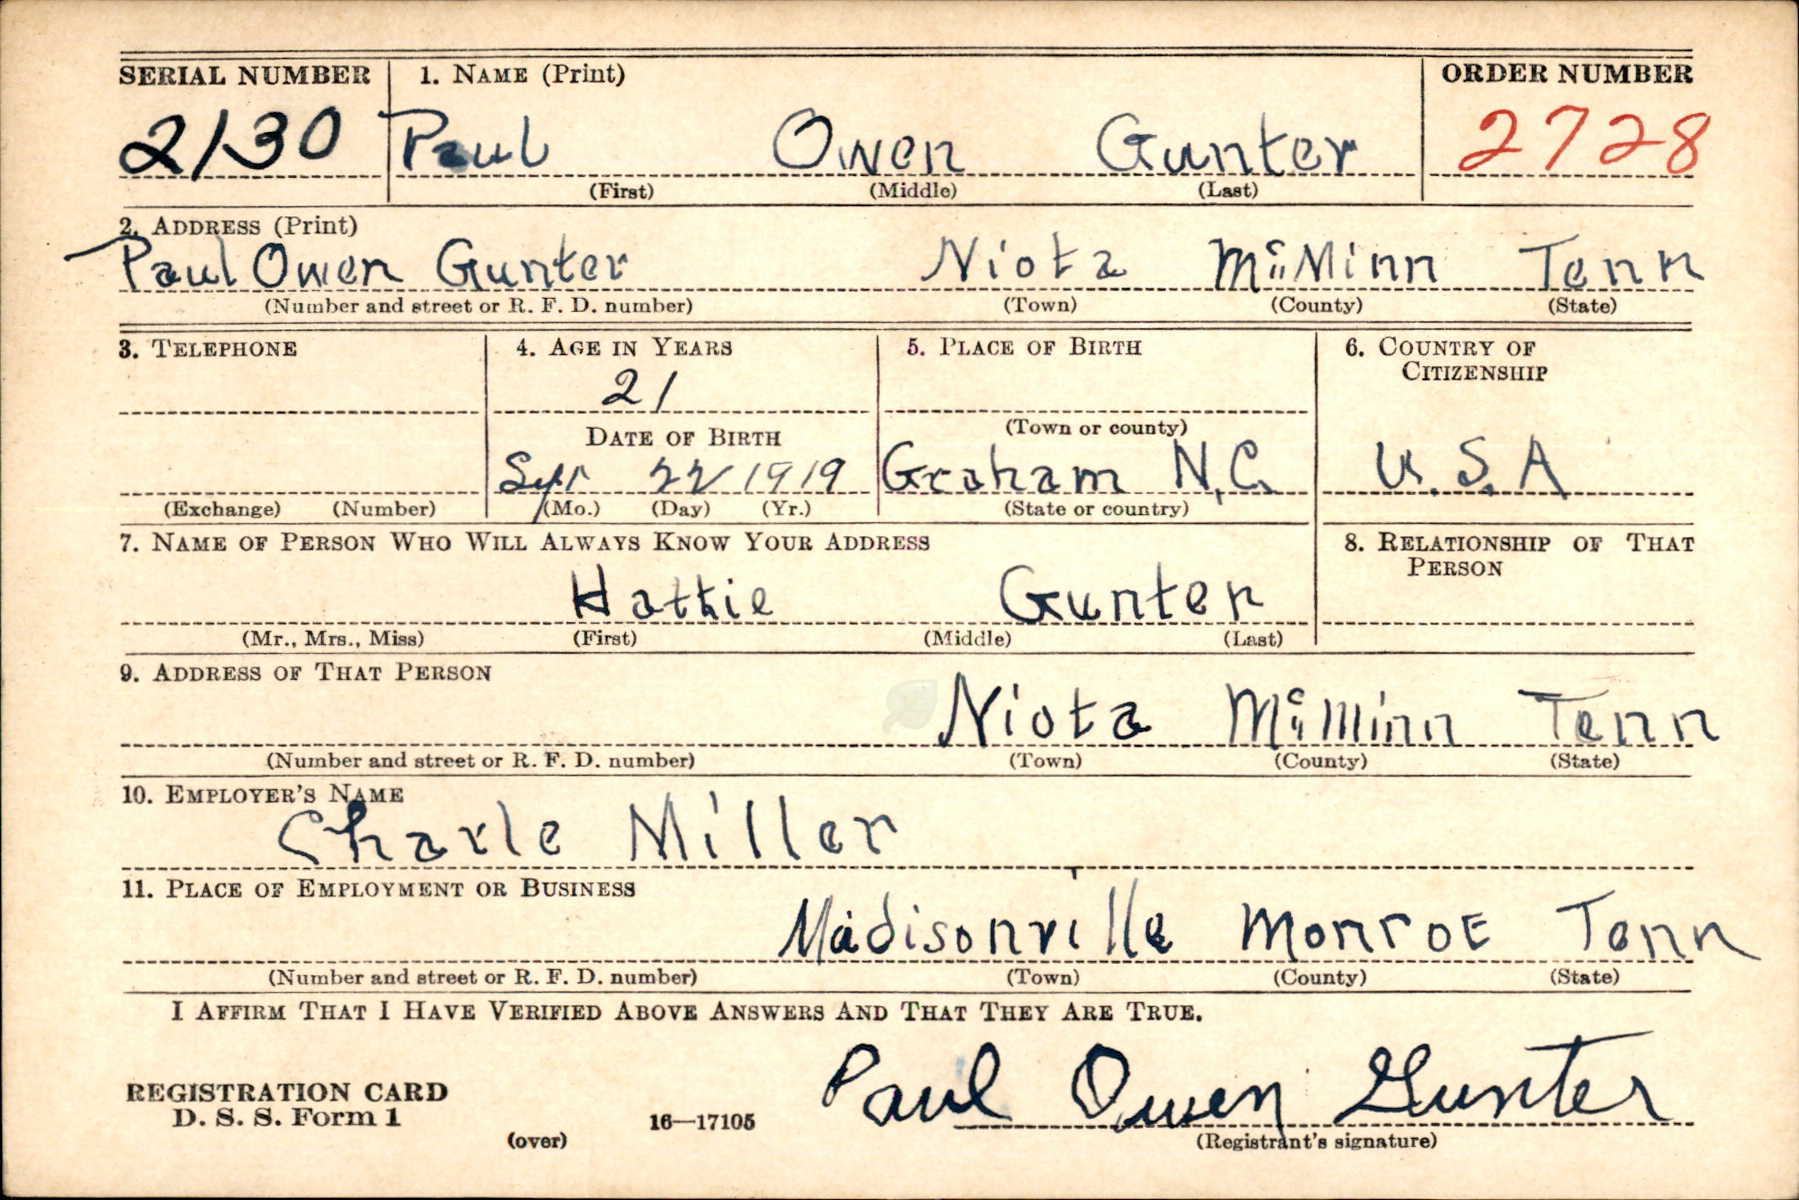 SERIAL NUMBER 1. NAME (Print) ORDER NUMBER
2130 Paul Owen Gunter 2728
(First) (Middle) (Last)
2. ADDRESS (Print)
Paul Owen Gunter Niota McMinn Tenn
(Number and street or R. F. D. number) (Town) (County) (State)
3. TELEPHONE 4. AGE IN YEARS 5. PLACE OF BIRTH 6. COUNTRY OF
CITIZENSHIP
21
DATE OF BIRTH (Town or county)
Sept 22 1919 Graham N.C. U.S.A
(Exchange) (Number) (Mo.) (Day) (Yr.) (State or country)
7. NAME OF PERSON WHO WILL ALWAYS KNOW YOUR ADDRESS 8. RELATIONSHIP OF THAT
PERSON
Hattie Gunter
(Mr., Mrs., Miss) (First) (Middle) (Last)
9. ADDRESS OF THAT PERSON
Niota McMinn Tenn
(Number and street or R. F. D. number) (Town) (County) (State)
10. EMPLOYER'S NAME
Charle Miller
11. PLACE OF EMPLOYMENT OR BUSINESS
Madisonville Monroe Tenn
(Number and street or R. F. D. number) (Town) (County) (State)
I AFFIRM THAT I HAVE VERIFIED ABOVE ANSWERS AND THAT THEY ARE TRUE.
Paul Owen Gunter
REGISTRATION CARD
D. S. S. Form 1
(over) 16—17105 (Registrant's signature)